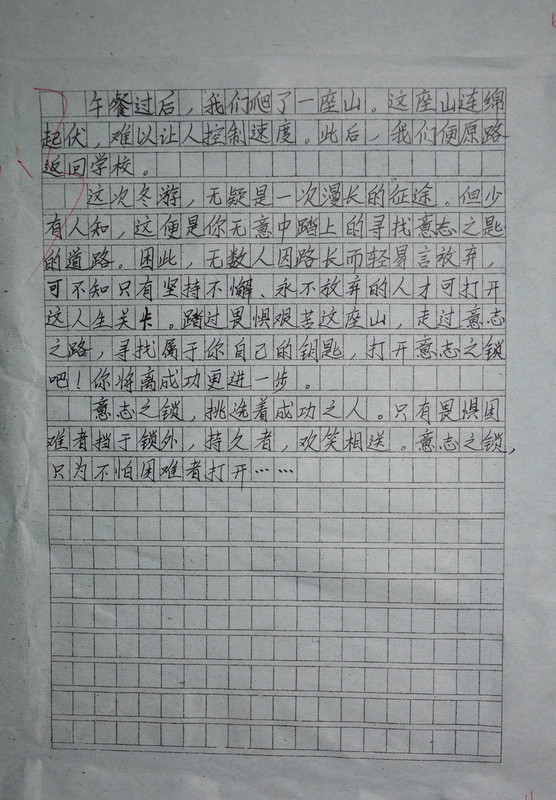 午餐过后，我们爬了一座山。这座山连绵
起伏，难以让人控制速度。此后，我们便原路
返回学校。
这次冬游，无疑是一次漫长的征途。但少
有人知，这便是你无意中踏上的寻找意志之匙
的道路。因此，无数人因路长而轻易言放弃，
可不知只有坚持不懈、永不放弃的人才可打开
这人生关卡。踏过畏惧艰苦这座山，走过意志
之路，寻找属于你自己的钥匙，打开意志之锁
吧！你将离成功更进一步。
意志之锁，挑选着成功之人。只有畏惧困
难者挡于锁外，持久者，欢笑相送。意志之锁，
只为不怕困难者打开……